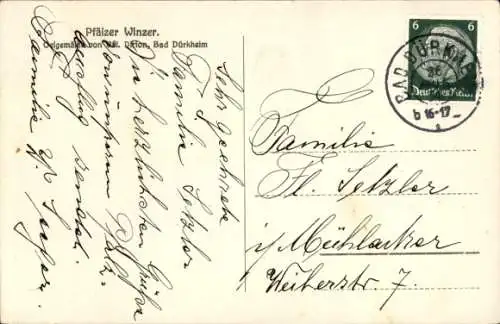 Pfälzer Winzer.
Oelgemälde von Ad. Dirion, Bad Dürkheim
Sehr geehrte
Familie Setzler
F.
Die herzlichsten Grüße
von unserem Pfalz-
ausflug sendet
Familie W. Seeger.
6 6
Deutsches Reich
BAD DÜRKHEIM
16-17
Familie
Fr. Setzler
i/ Mühlacker
Weiherstr. 7.